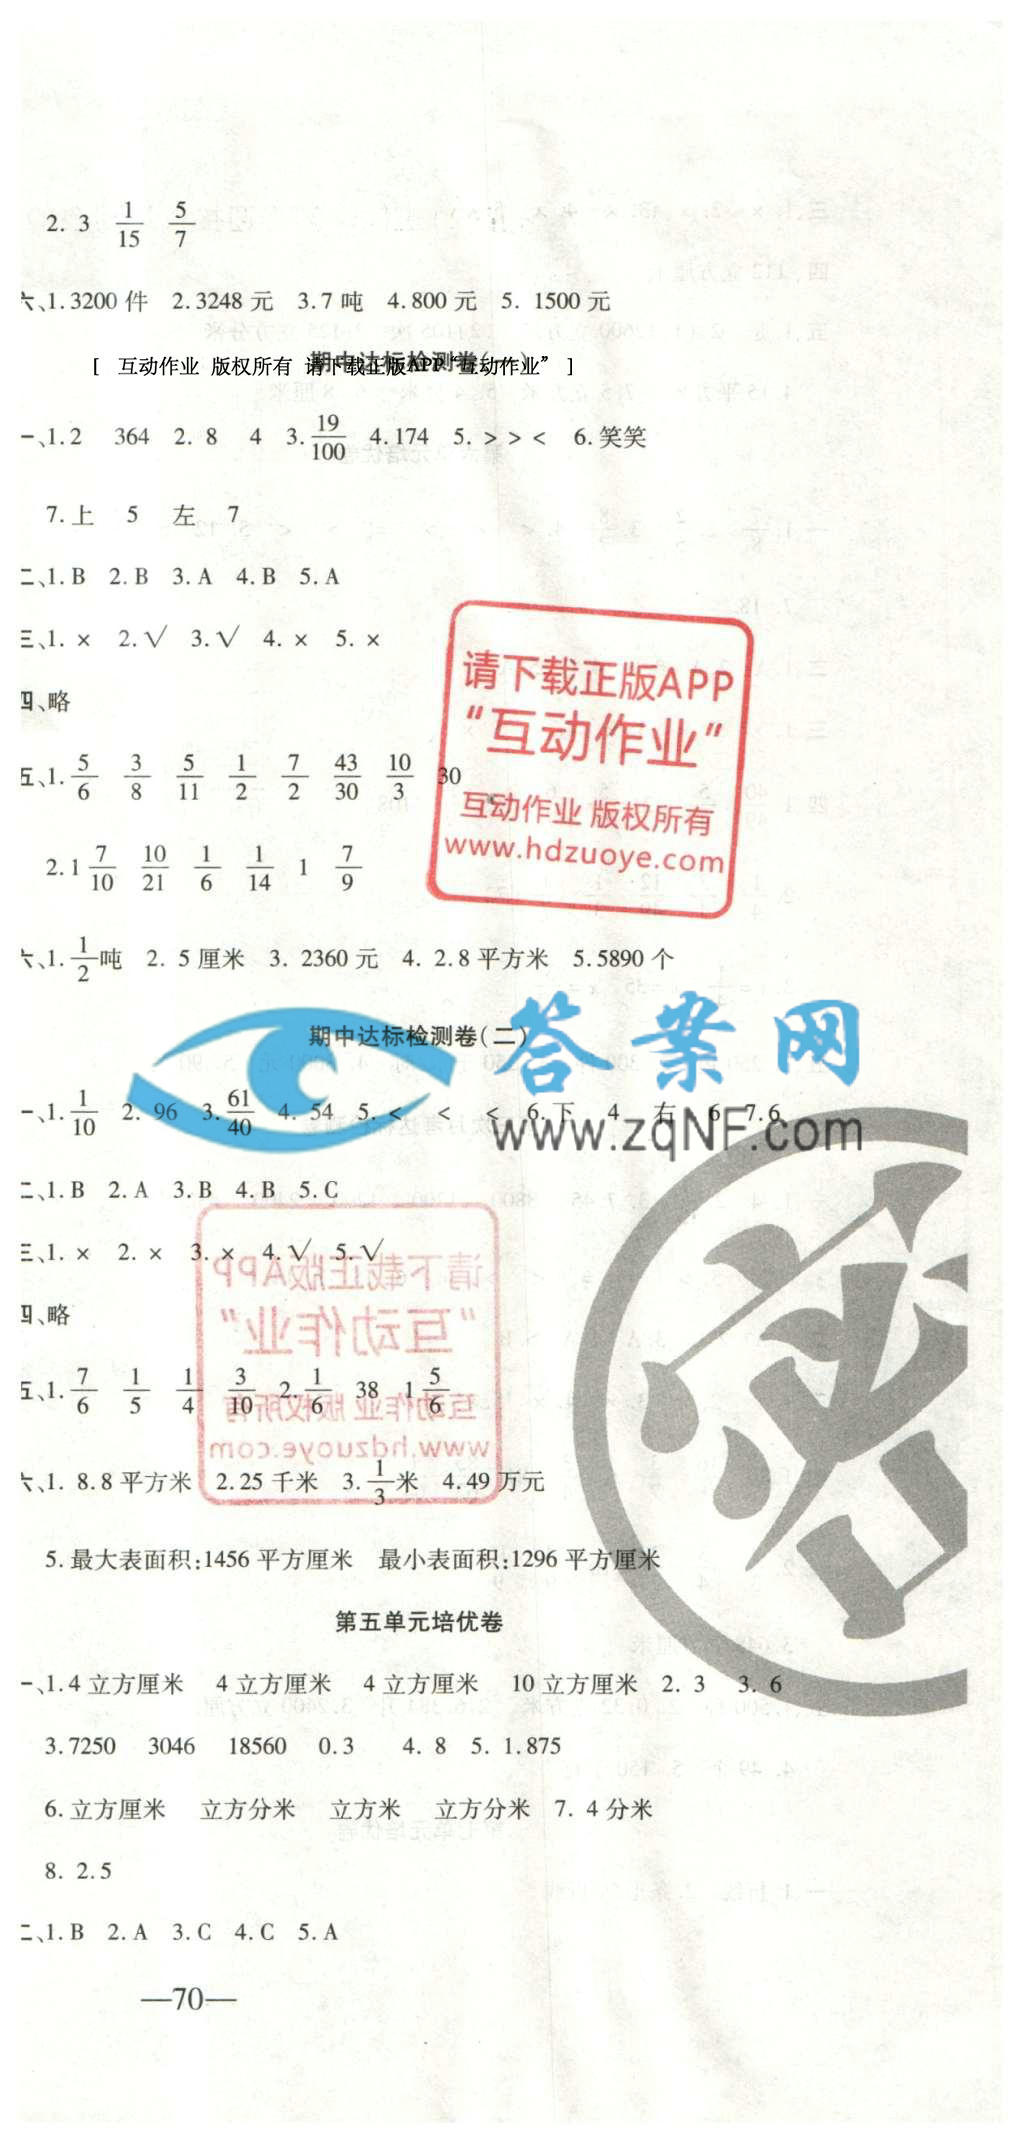 2. 3 1/15 5/7
六、1.3200 件 2.3248 元 3.7 吨 4.800 元 5. 1500 元
期中达标检测卷(一)
[ 互动作业 版权所有 请下载正版APP“互动作业” ]
一、1.2 364 2. 8 4 3. 19/100 4.174 5. > > < 6.笑笑
7.上 5 左 7
二、1.B 2.B 3.A 4.B 5.A
三、1. × 2.√ 3.√ 4. × 5. ×
四、略
请下载正版APP
“互动作业”
互动作业 版权所有
www.hdzuoye.com
五、1. 5/6 3/8 5/11 1/2 7/2 43/30 10/3 30
2.1 7/10 10/21 1/6 1/14 1 7/9
六、1. 1/2 吨 2. 5 厘米 3. 2360 元 4. 2.8 平方米 5.5890 个
期中达标检测卷(二)
答案网
www.zqNF.com
一、1. 1/10 2. 96 3. 61/40 4. 54 5. < < < 6.下 4 右 6 7.6
二、1.B 2.A 3.B 4.B 5.C
三、1. × 2. × 3. × 4.√ 5.√
四、略
请下载正版APP
“互动作业”
互动作业 版权所有
www.hdzuoye.com
五、1. 7/6 1/5 1/4 3/10 2. 1/6 38 1 5/6
六、1. 8.8 平方米 2.25 千米 3. 1/3 米 4.49 万元
5. 最大表面积:1456 平方厘米 最小表面积:1296 平方厘米
密
第五单元培优卷
一、1.4 立方厘米 4 立方厘米 4 立方厘米 10 立方厘米 2. 3 3. 6
3.7250 3046 18560 0.3 4. 8 5. 1.875
6.立方厘米 立方分米 立方米 立方分米 7. 4 分米
8. 2.5
二、1.B 2.A 3.C 4.C 5.A
—70—